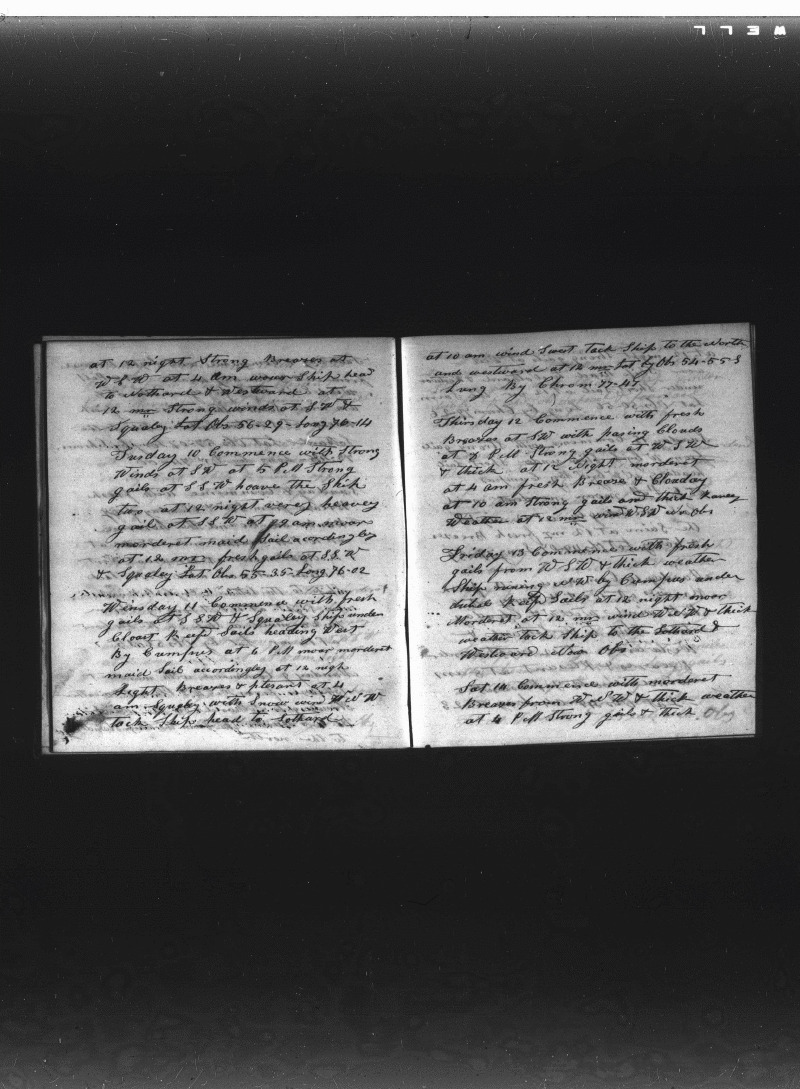 WELL
at 12 night Strong Breases at
W S W at 4 am wour Ship head
to Nothard & Westward at
12 mr Strong winds at S W &
Squaley Lat Obs 56-29- Long 76-14
Tusday 10 Commence with Strong
Winds at S W at 5 PM Strong
gails at S S W hoave the Ship
two at 12 night very heavey
gail at S S W at am moor
morderet maid Sail acordingley
at 12 mr fresh gails at S S W
& Squaley Lat Obs 55-35- Long 76-02
Winsday 11 Commence with fresh
gails at S S W & Squaley Ship under
Cloast Reefd Sails heading West
By Cumpus at 6 PM moor morderet
maid Sail accordingley at 12 nigh
Light Breases & plesant at 4
am Squaley with Snow wind W N W
tack Ship head to Sothard
at 10 am wind Swest Tack Ship to the North
and westward at 12 mr Lat by Obs 54-55-S
Long By Chrom 77-47
Thirsday 12 Commence with fresh
Breases at SW with pasing Clouds
at PM Strong gails at W S W
& thick at 12 Night morderet
at 4 am fresh Brease & Clouday
at 10 am Strong gails and thick heavey
Weather at 12 mr wind W S W No Obs
Friday 13 Commence with fresh
gails from W S W & thick weather
Ship N W by Cumpus under
Reefd Sails at 12 night moor
Morderet at 12 mr wind W N W & thick
weather tack Ship to the Sothard &
Westward No Obs
Sat 14 Commence with morderet
Breases from W N W & thick weather
at 4 PM Strong gails & thick Obs